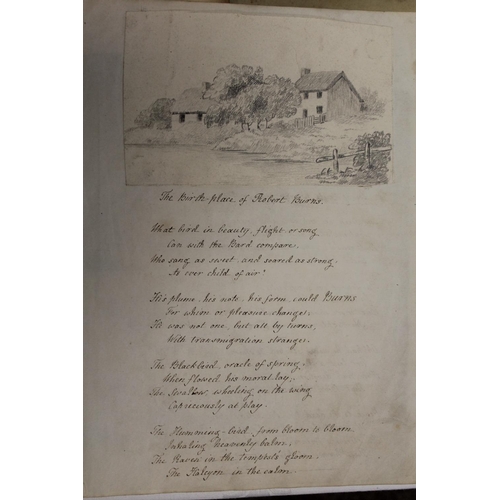 The Birth-place of Robert Burns.
What bird in beauty, flight, or song
Can with the Bard compare,
Who sang as sweet, and soared as strong,
As ever child of air?
His plume, his note, his form, could Burns
For whim or pleasure change;
He was not one, but all by turns,
With transmigration strange.
The Blackbird, oracle of spring,
When flowed his moral lay;
The Swallow, wheeling on the wing
Capriciously at play.
The Humming-bird, from bloom to bloom
Inhaling heavenly balm;
The Raven in the tempest's gloom,
The Halcyon in the calm.